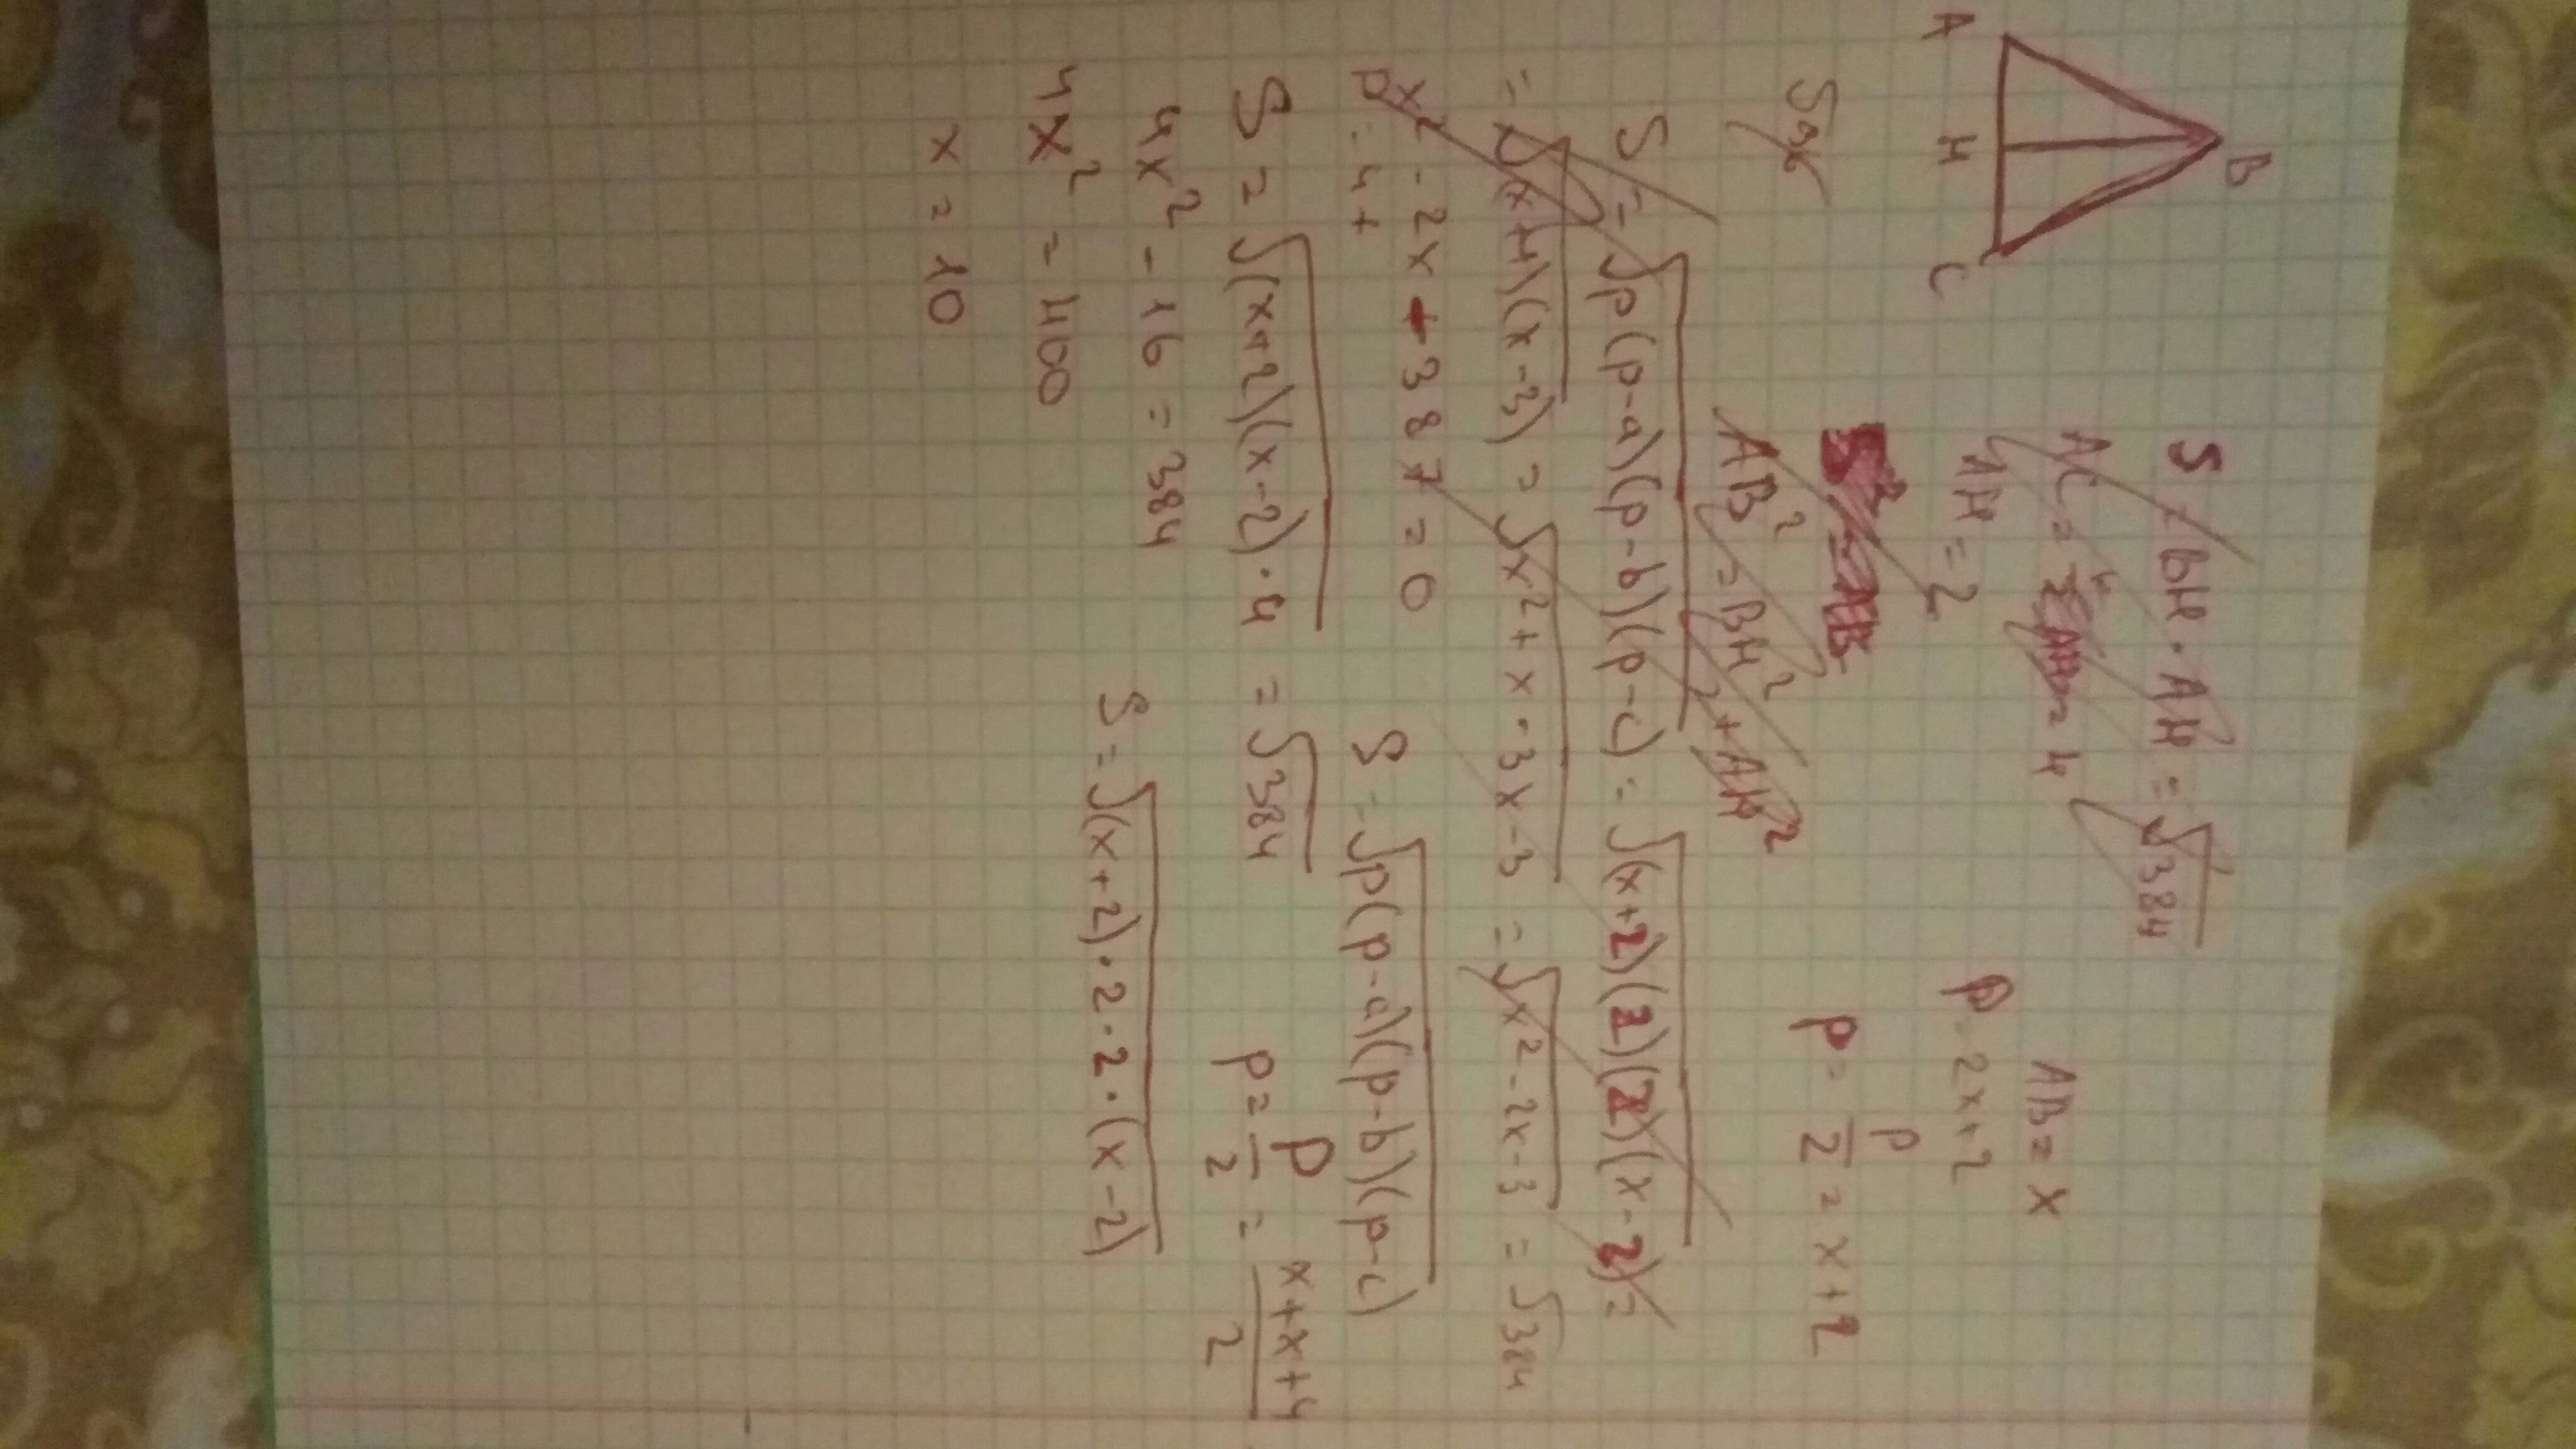 B
A H C
S = BH · AH = √384
AC = 4
AH = 2
AB = x
P = 2x+2
p = P/2 = x+2
AB² = BH² + AH²
S = √p(p-a)(p-b)(p-c) = √(x+2)(2)(2)(x-2) =
= √(x+1)(x-3) = √x²+x-3x-3 = √x²-2x-3 = √384
x² - 2x + 387 = 0
p = 4+
S = √p(p-a)(p-b)(p-c)
S = √(x+2)(x-2)·4 = √384
p = P/2 = x+x+4/2
4x² - 16 = 384
S = √(x+2)·2·2·(x-2)
4x² = 400
x = 10